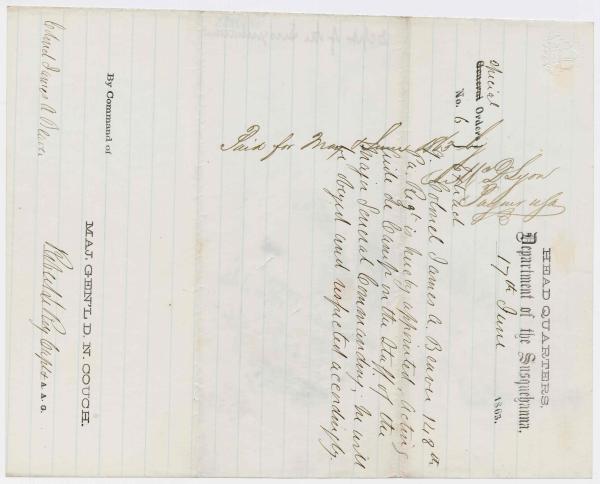 HEAD QUARTERS,
Department of the Susquehanna,
17th June 1863.
Special
General Orders
No. 6
Colonel James A. Beaver 148th
Pa. Regt. is hereby appointed Acting
Aide de Camp on the Staff of the
Major General Commanding; He will
be obeyed and respected accordingly.
By Command of
MAJ. GEN'L D. N. COUCH.
Capt & A. A. G.
Colonel James A. Beaver
Paid for May & June 1863 by
Lyon
Paymr USA